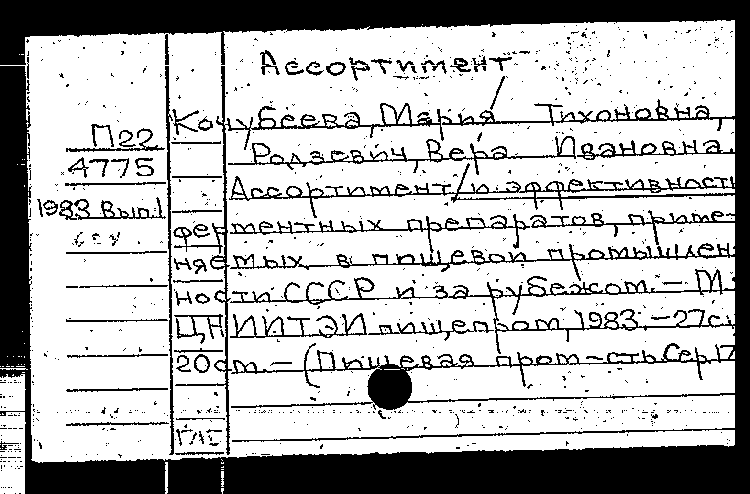 Ассортимент
П22
4775
1983 Вып.1
Кочубеева, Мария Тихоновна,
Родзевич, Вера Ивановна.
Ассортимент и эффективност
ферментных препаратов, приме-
няемых в пищевой промышлен
ности СССР и за рубежом. – М.
ЦНИИТЭИпищепром, 1983. – 27с.
20см. – (Пищевая пром-сть. Сер. 17